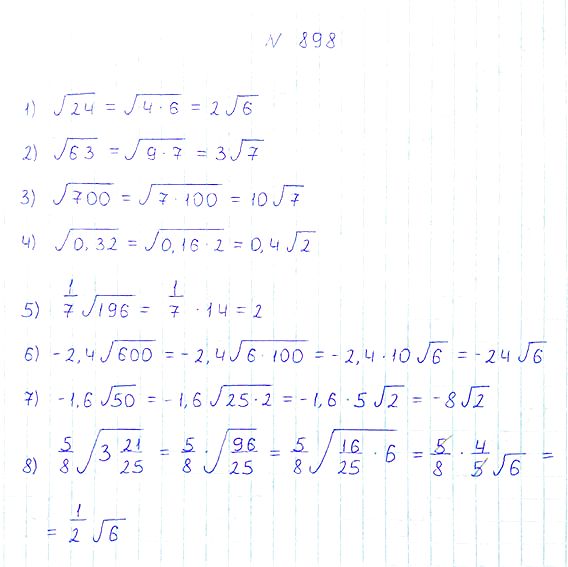 N 898
1) √24 = √4·6 = 2√6
2) √63 = √9·7 = 3√7
3) √700 = √7·100 = 10√7
4) √0,32 = √0,16·2 = 0,4√2
5) 1/7 √196 = 1/7 · 14 = 2
6) -2,4√600 = -2,4√6·100 = -2,4·10√6 = -24√6
7) -1,6√50 = -1,6√25·2 = -1,6·5√2 = -8√2
8) 5/8 √3 21/25 = 5/8 · √96/25 = 5/8 √16/25 · 6 = 5/8 · 4/5 √6 =
= 1/2 √6